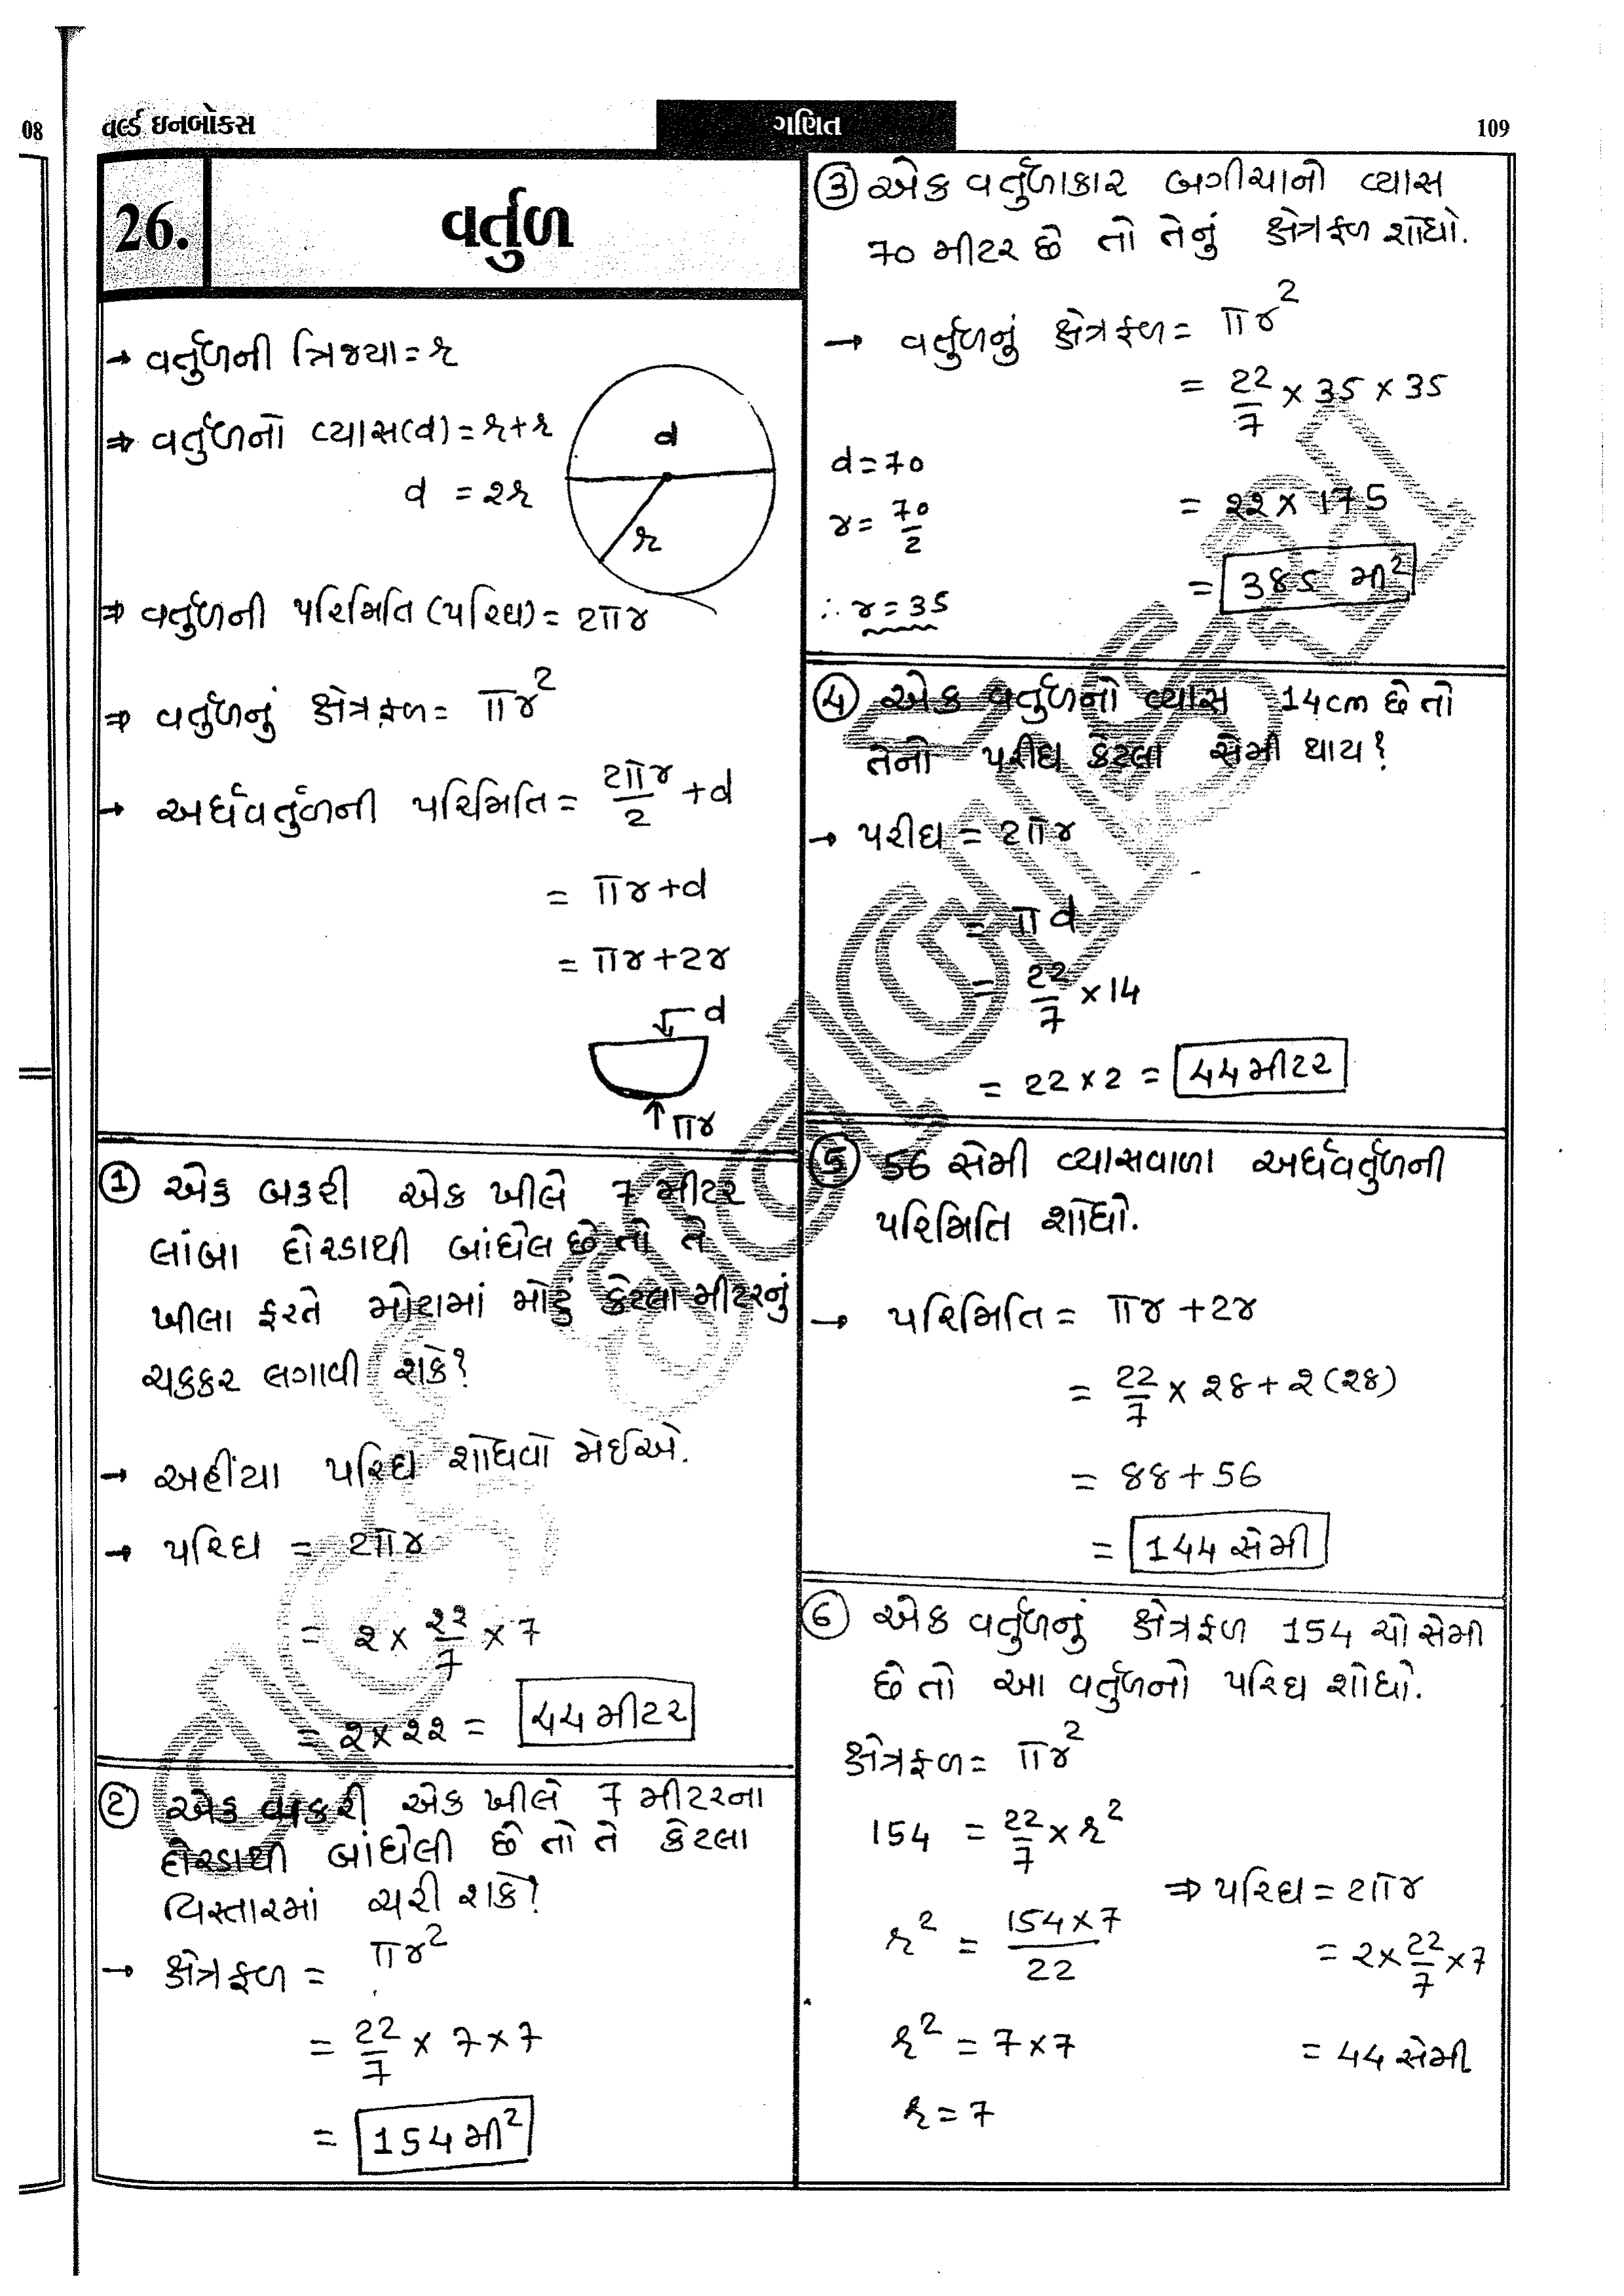 08
વર્લ્ડ ઇનબોક્સ
ગણિત
109
26.
વર્તુળ
→ વર્તુળની ત્રિજ્યા = r
⇒ વર્તુળનો વ્યાસ(d) = r + r
d = 2r
d
r
⇒ વર્તુળની પરિમિતિ (પરિઘ) = 2πr
⇒ વર્તુળનું ક્ષેત્રફળ = πr²
→ અર્ધવર્તુળની પરિમિતિ = 2πr/2 + d
= πr + d
= πr + 2r
d
πr
① એક બકરી એક ખીલે 7 મીટર
લાંબા દોરડાથી બાંધેલ છે તો તે
ખીલા ફરતે મોટામાં મોટું કેટલા મીટરનું
ચક્કર લગાવી શકે?
→ અહીંયા પરિઘ શોધવો જોઈએ.
→ પરિઘ = 2πr
= 2 × 22/7 × 7
= 2 × 22 = 44 મીટર
② એક બકરી એક ખીલે 7 મીટરના
દોરડાથી બાંધેલી છે તો તે કેટલા
વિસ્તારમાં ચરી શકે?
→ ક્ષેત્રફળ = πr²
= 22/7 × 7 × 7
= 154 મી²
③ એક વર્તુળાકાર બગીચાનો વ્યાસ
70 મીટર છે તો તેનું ક્ષેત્રફળ શોધો.
→ વર્તુળનું ક્ષેત્રફળ = πr²
= 22/7 × 35 × 35
d = 70
r = 70/2
= 22 × 175
= 385 મી²
∴ r = 35
④ એક વર્તુળનો વ્યાસ 14cm છે તો
તેનો પરીઘ કેટલા સેમી થાય?
→ પરીઘ = 2πr
= πd
= 22/7 × 14
= 22 × 2 = 44 મીટર
⑤ 56 સેમી વ્યાસવાળા અર્ધવર્તુળની
પરિમિતિ શોધો.
→ પરિમિતિ = πr + 2r
= 22/7 × 28 + 2(28)
= 88 + 56
= 144 સેમી
⑥ એક વર્તુળનું ક્ષેત્રફળ 154 ચો સેમી
છે તો આ વર્તુળનો પરિઘ શોધો.
ક્ષેત્રફળ = πr²
154 = 22/7 × r²
r² = 154 × 7/22
r² = 7 × 7
r = 7
⇒ પરિઘ = 2πr
= 2 × 22/7 × 7
= 44 સેમી